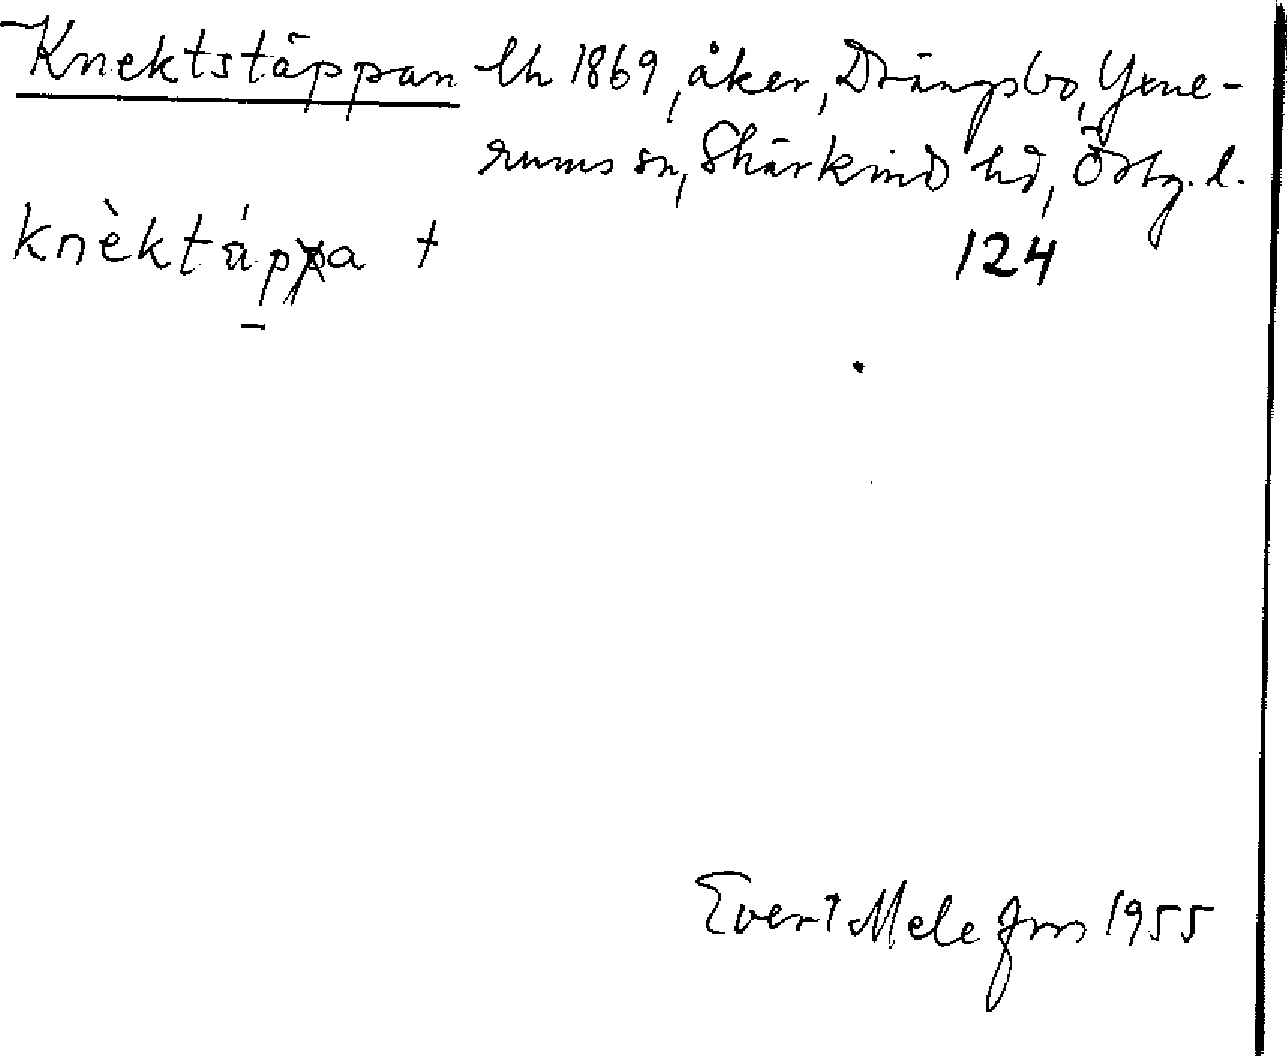 Knektstäppan lh 1869, åker, Drängsbo, Yxne-
rums sn, Skärkind hd, Östg. l.
knèktáppa +
124
Evert Melefors 1955